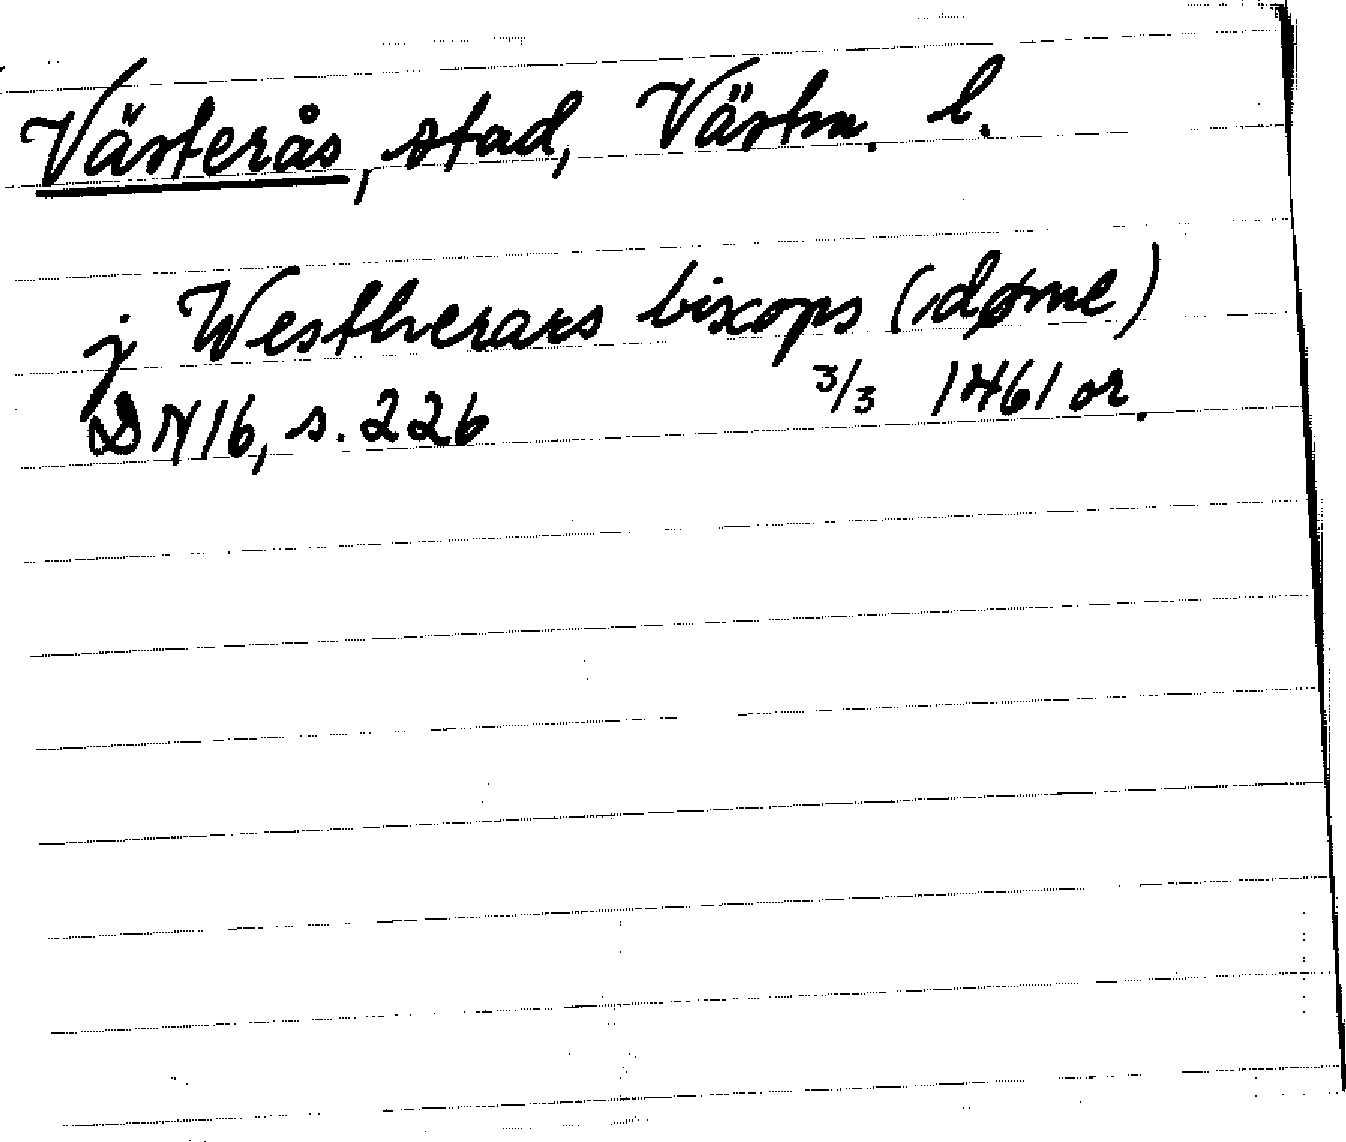 Västerås, stad, Västm. l.
j Westherars biscops (døme)
DN16, s. 226 3/3 1461 or.